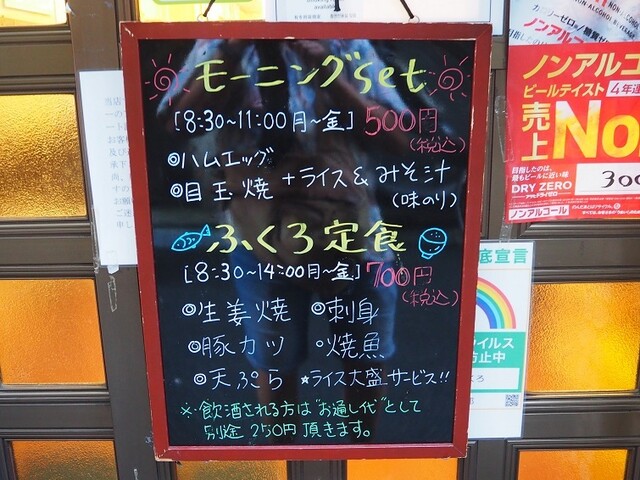 モーニングset
[8:30~11:00月~金] 500円
(税込)
◎ハムエッグ
◎目玉焼 +ライス&みそ汁
(味のり)
ふくろ定食
[8:30~14:00月~金] 700円
(税込)
◎生姜焼 ◎刺身
◎豚カツ ◦焼魚
◎天ぷら ☆ライス大盛サービス!!
※飲酒される方は"お通し代"として
別途250円頂きます。
ノンアルコ
ビールテイスト 4年連
売上 No
目指したのは、
最もビールに近い味
DRY ZERO
ノンアルコール
300
底宣言
イルス
防止中